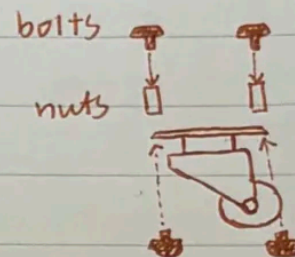 bolts
nuts